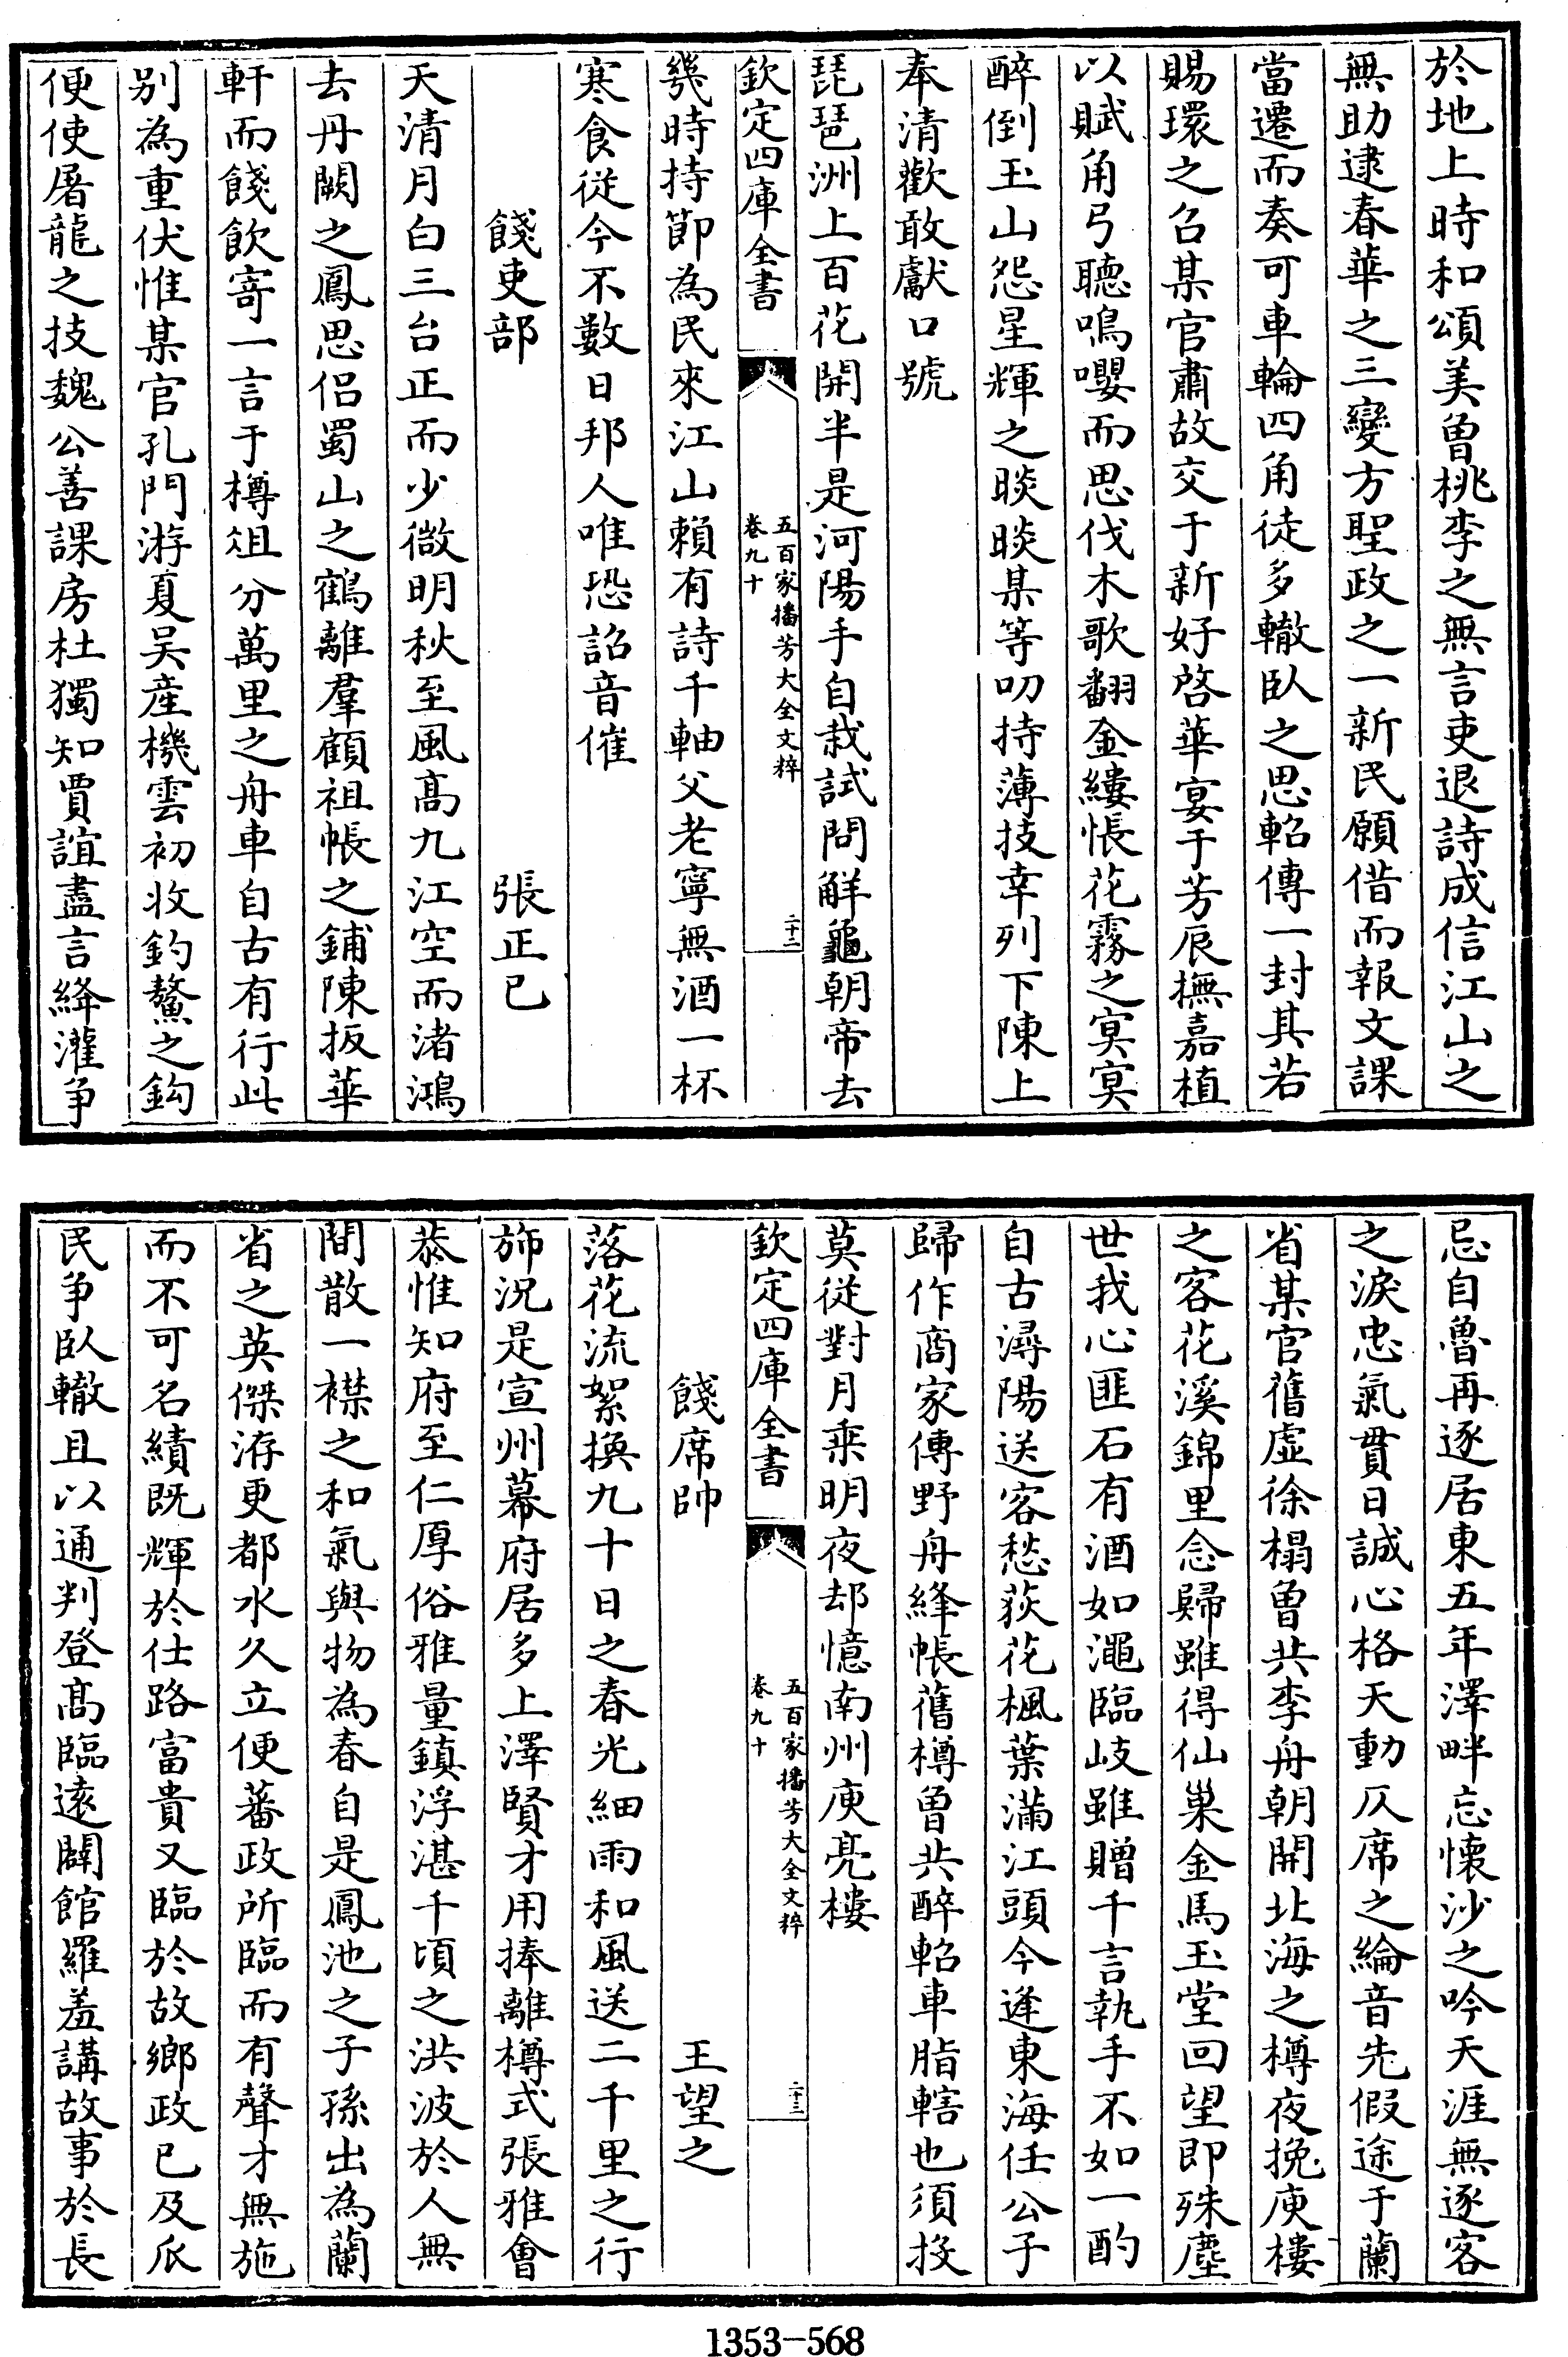 於地上時和頌美魯桃李之無言吏退詩成信江山之
無助逮春華之三變方聖政之一新民願借而報文課
當遷而奏可車輪四角徒多轍臥之思軺傳一封其若
賜環之召某官肅故交于新好啓華宴于芳辰撫嘉植
以賦角弓聽鳴嚶而思伐木歌翻金縷悵花霧之㝠㝠
醉倒玉山怨星輝之晱晱某等叨持薄技幸列下陳上
奉清歡敢獻口號
琵琶洲上百花開半是河陽手自栽試問解龜朝帝去
欽定四庫全書
五百家播芳大全文粹
卷九十
二十二
幾時持節為民來江山賴有詩千軸父老寧無酒一杯
寒食從今不數日邦人唯恐詔音催
餞吏部
張正已
天清月白三台正而少微明秋至風髙九江空而渚鴻
去丹闕之鳳思侣蜀山之鶴離羣顧祖帳之鋪陳扳華
軒而餞飲寄一言于樽俎分萬里之舟車自古有行此
别為重伏惟某官孔門游夏吴産機雲初收釣鰲之鈎
便使屠龍之技魏公善課房杜獨知賈誼盡言絳灌爭
忌自魯再逐居東五年澤畔忘懷沙之吟天涯無逐客
之淚忠氣貫日誠心格天動仄席之綸音先假途于蘭
省某官舊虚徐榻曽共李舟朝開北海之樽夜挽庾樓
之客花溪錦里念歸雖得仙巢金馬玉堂回望即殊塵
世我心匪石有酒如澠臨岐雖贈千言執手不如一酌
自古潯陽送客愁荻花楓葉滿江頭今逢東海任公子
歸作商家傳野舟絳帳舊樽曽共醉軺車脂轄也須投
莫從對月乗明夜却憶南州庾亮樓
欽定四庫全書
五百家播芳大全文粹
卷九十
二十三
餞席帥
王望之
落花流絮換九十日之春光細雨和風送二千里之行
斾况是宣州幕府居多上澤賢才用捧離樽式張雅會
恭惟知府至仁厚俗雅量鎮浮湛千頃之洪波於人無
間散一襟之和氣與物為春自是鳳池之子孫出為蘭
省之英傑洊更都水久立便蕃政所臨而有聲才無施
而不可名績既輝於仕路富貴又臨於故鄉政已及瓜
民争臥轍且以通判登髙臨逺闢館羅羞講故事於長
1353-568